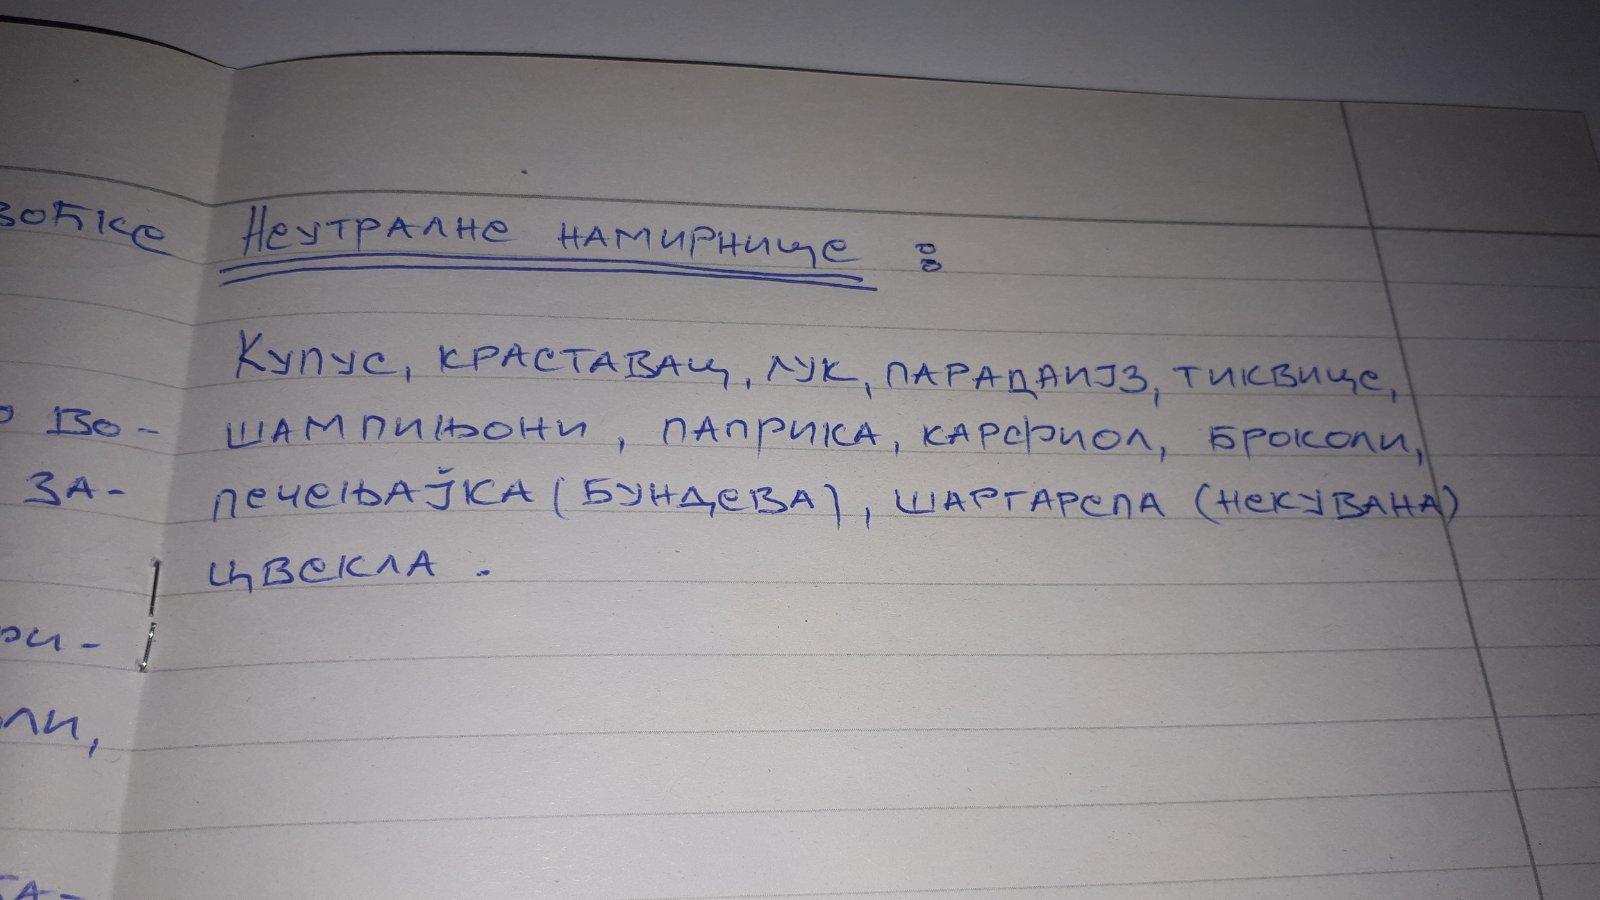 воћке
Неутралне намирнице :
Купус, краставац, лук, парадаијз, тиквице,
во-
шампињони, паприка, карфиол, броколи,
за-
печењајка (бундева), шаргарепа (некувана)
цвекла.
ри-
ли,